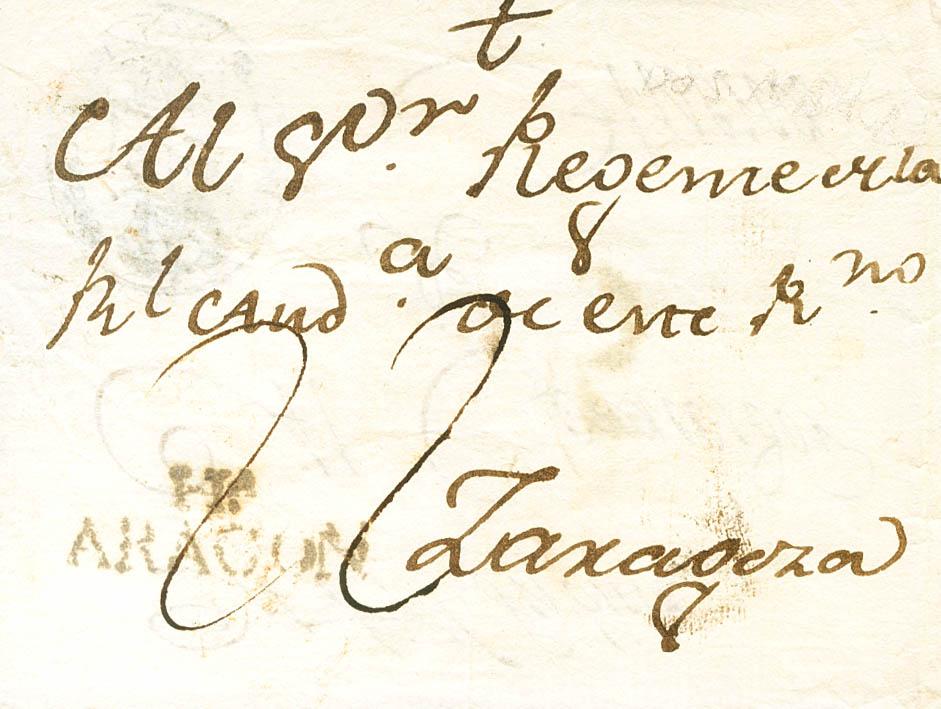 Al Sor. Regente de la
Rl Auda. de este Rno.
Hca
ARAGON
Zaragoza